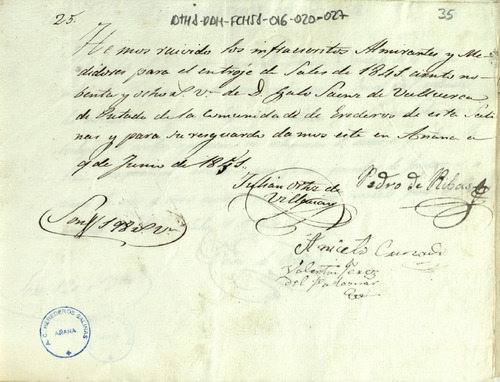 25.
ATHA-DAH-FCHSA-016-020-027
35
Hemos recivido los infraescritos Almirantes y Me-
didores para el entroje de Sales de 1841 ciento no-
benta y ocho r.s v.n de D. Galo Saenz de
de la Comunidad de Erederos de esta Sali-
nas y para su resguardo damos este en Añana a
9 de Junio de 1851.
Julián Ortiz de
Pedro de Ribas
Son 198 r.s v.n
Aniceto
Valentin Perez
del Palomar
A.C. HEREDEROS SALINAS
AÑANA